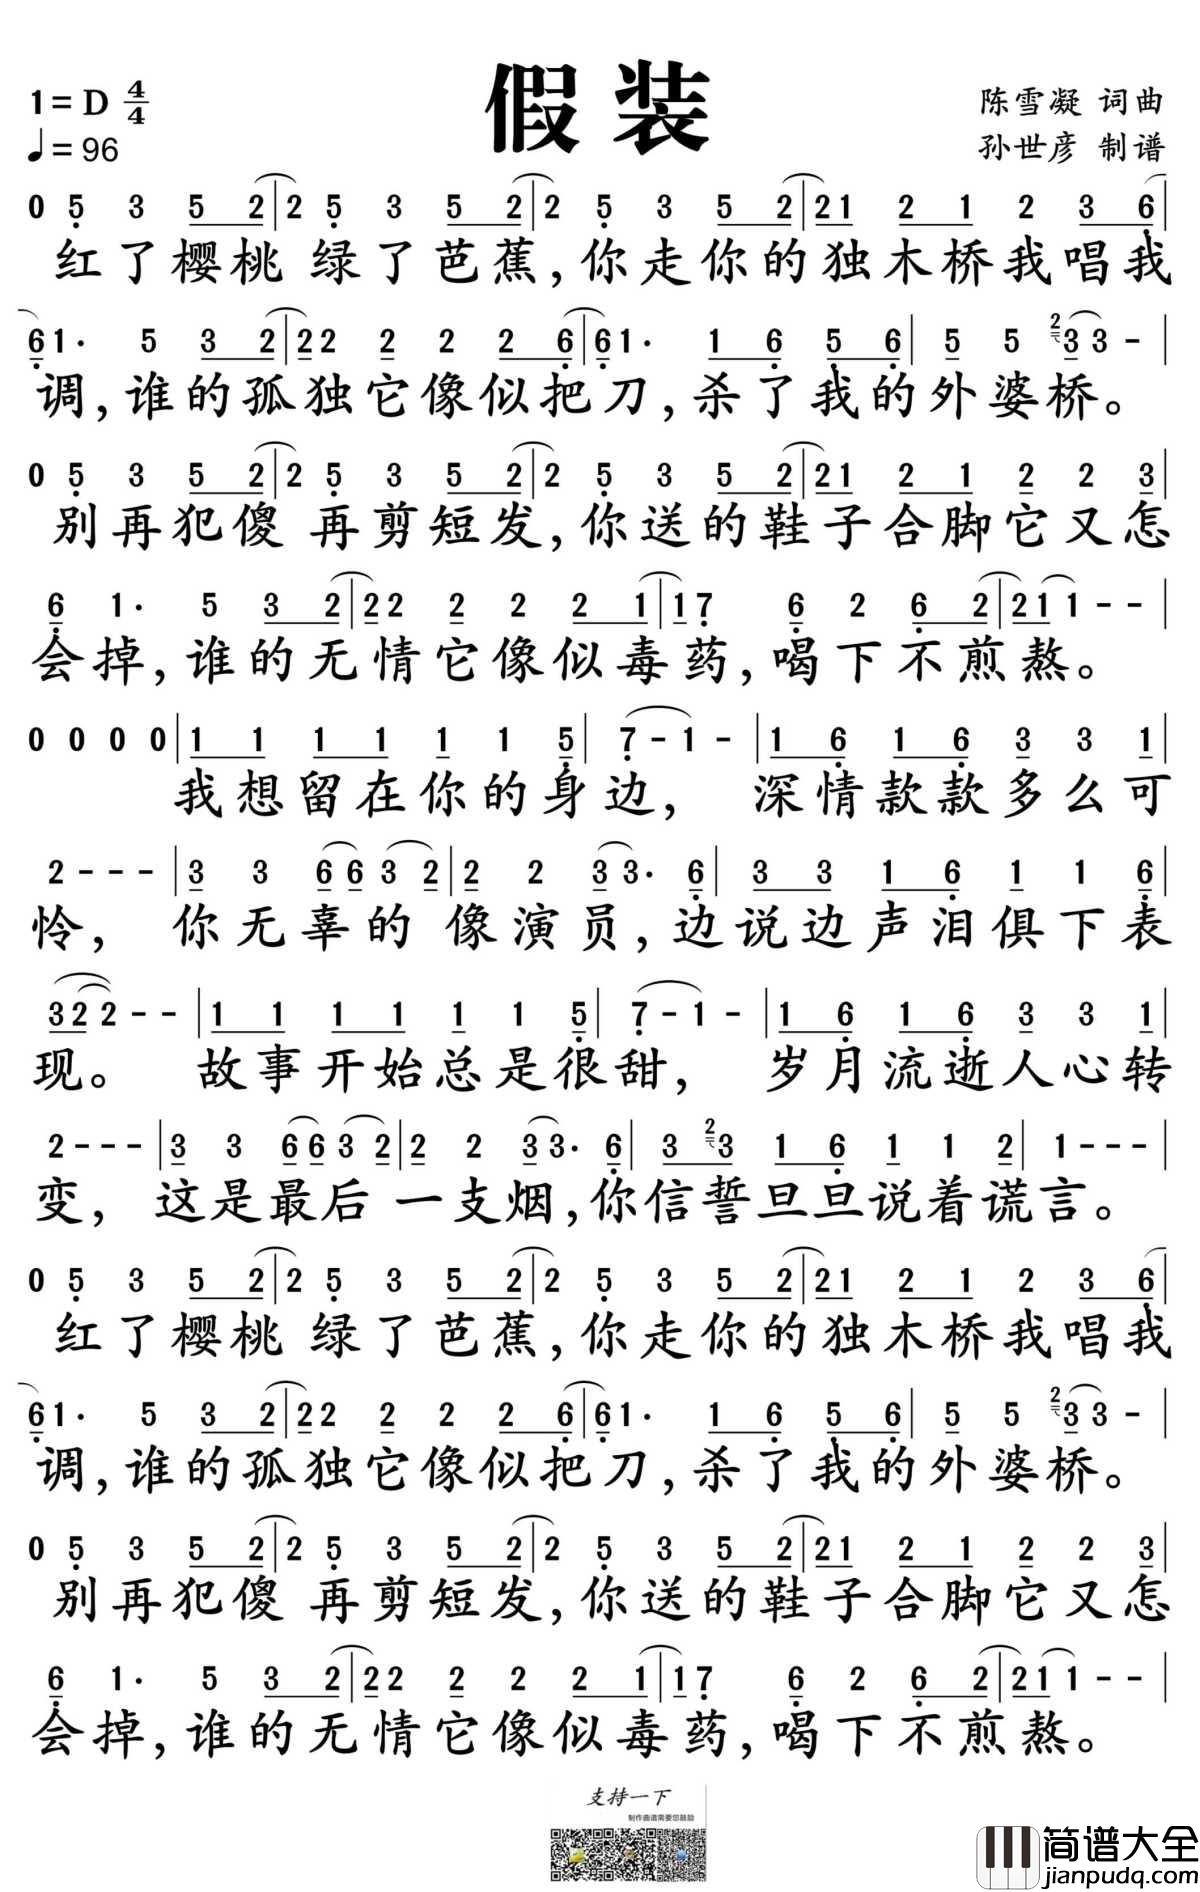 假装
1=D 4/4
♩=96
陈雪凝 词曲
孙世彦 制谱
0 5 3 5 2|2 5 3 5 2|2 5 3 5 2|2 1 2 1 2 3 6|
红了樱桃 绿了芭蕉,你走你的独木桥我唱我
6 1· 5 3 2|2 2 2 2 2 6|6 1· 1 6 5 6|5 5 2 3 3 -|
调,谁的孤独它像似把刀,杀了我的外婆桥。
0 5 3 5 2|2 5 3 5 2|2 5 3 5 2|2 1 2 1 2 2 3|
别再犯傻 再剪短发,你送的鞋子合脚它又怎
6 1· 5 3 2|2 2 2 2 2 1|1 7 6 2 6 2|2 1 1 - -|
会掉,谁的无情它像似毒药,喝下不煎熬。
0 0 0 0|1 1 1 1 1 1 5|7 - 1 -|1 6 1 6 3 3 1|
我想留在你的身边, 深情款款多么可
2 - - -|3 3 6 6 3 2|2 2 3 3· 6|3 3 1 6 1 1 6|
怜, 你无辜的 像演员,边说边声泪俱下表
3 2 2 - -|1 1 1 1 1 1 5|7 - 1 -|1 6 1 6 3 3 1|
现。 故事开始总是很甜, 岁月流逝人心转
2 - - -|3 3 6 6 3 2|2 2 3 3· 6|3 2 3 1 6 1 1 2|1 - - -|
变, 这是最后 一支烟,你信誓旦旦说着谎言。
0 5 3 5 2|2 5 3 5 2|2 5 3 5 2|2 1 2 1 2 3 6|
红了樱桃 绿了芭蕉,你走你的独木桥我唱我
6 1· 5 3 2|2 2 2 2 2 6|6 1· 1 6 5 6|5 5 2 3 3 -|
调,谁的孤独它像似把刀,杀了我的外婆桥。
0 5 3 5 2|2 5 3 5 2|2 5 3 5 2|2 1 2 1 2 2 3|
别再犯傻 再剪短发,你送的鞋子合脚它又怎
6 1· 5 3 2|2 2 2 2 2 1|1 7 6 2 6 2|2 1 1 - -|
会掉,谁的无情它像似毒药,喝下不煎熬。
支持一下
制作曲谱需要您鼓励
简谱大全
jianpudq.com